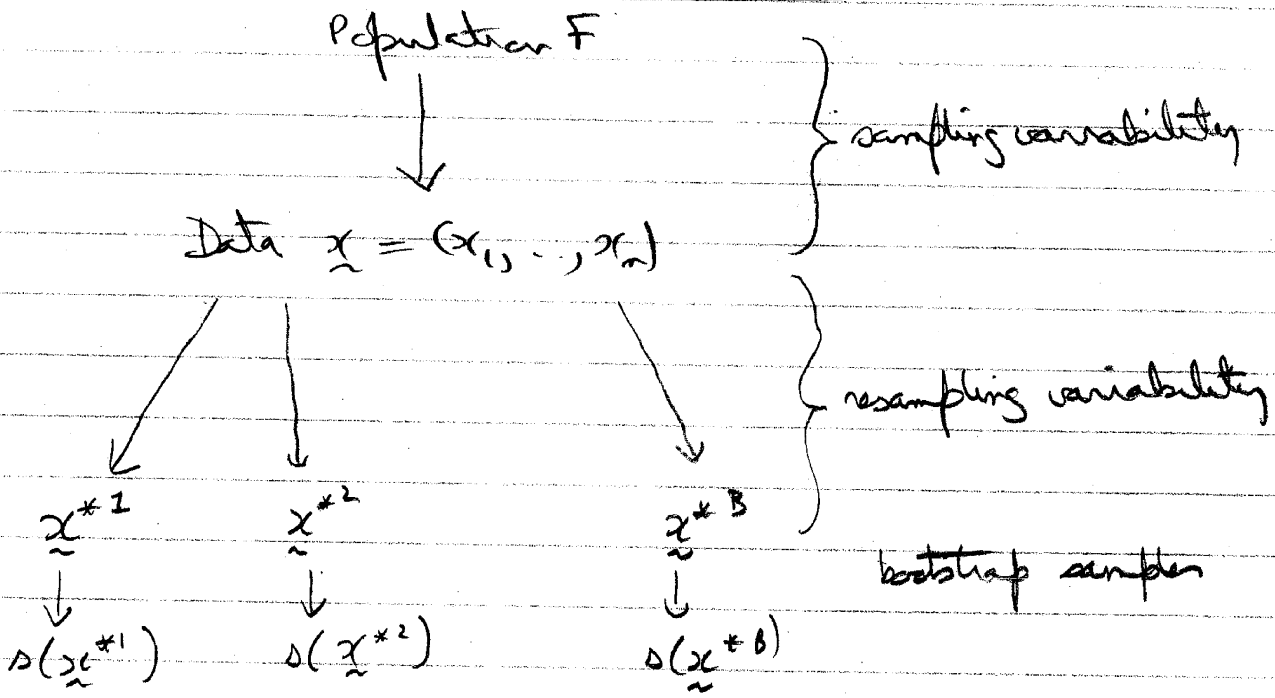 Population F
sampling variability
Data x̰ = (x₁, .., xₙ)
resampling variability
x̰*1 x̰*2 x̰*B
bootstrap samples
s(x̰*1) s(x̰*2) s(x̰*B)